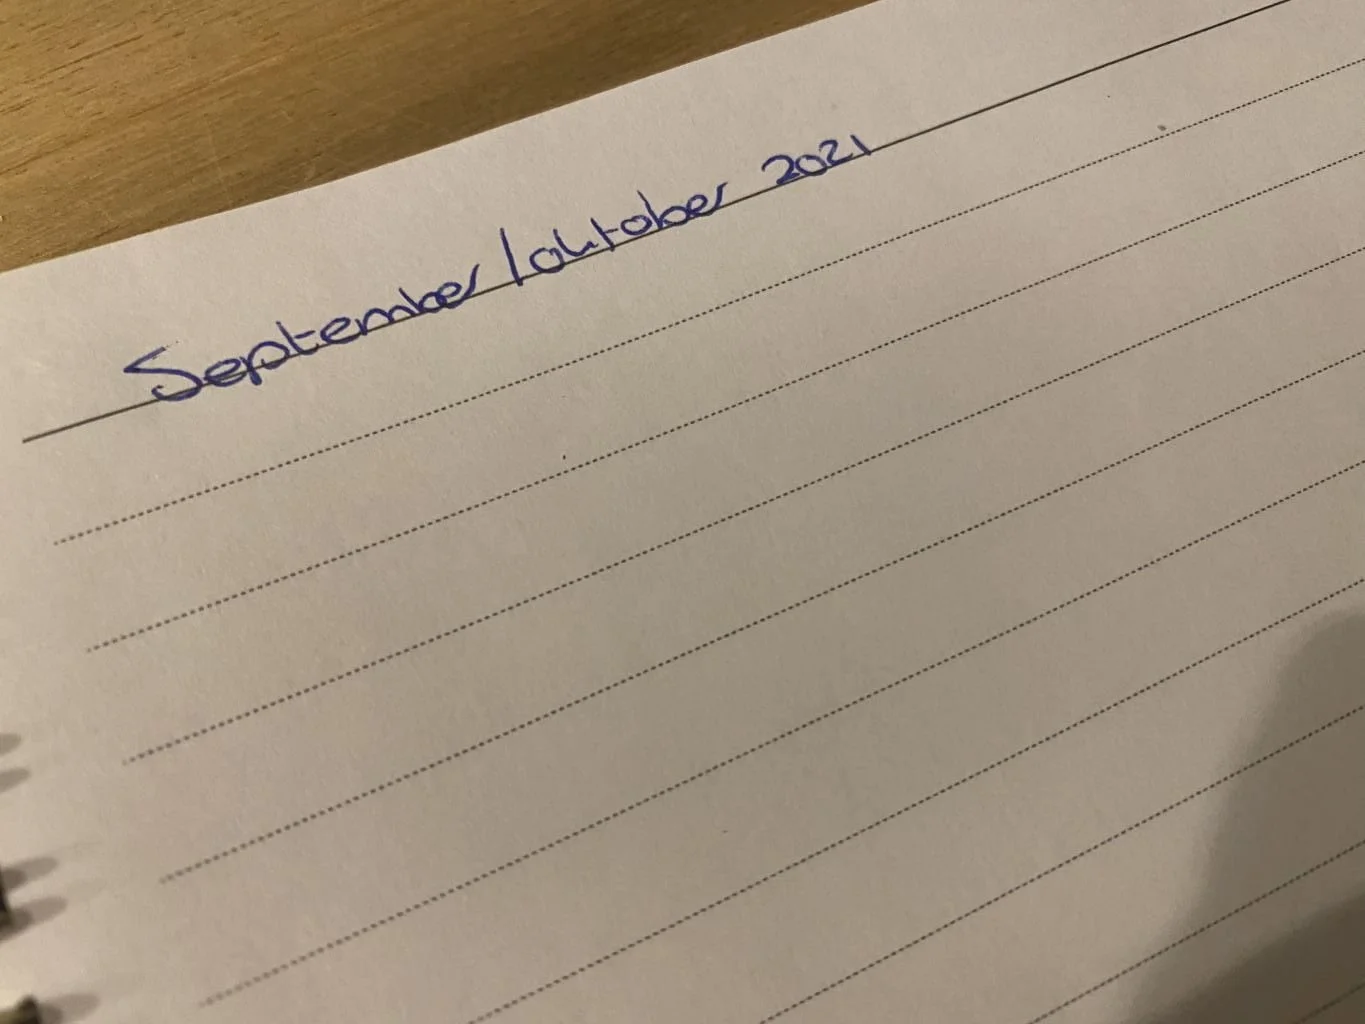 September / oktober 2021